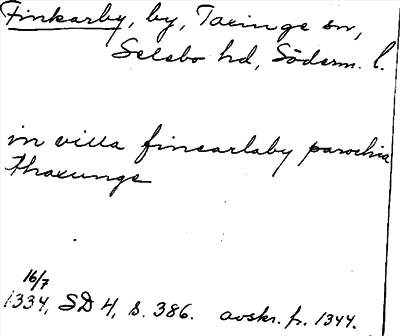 Finkarby, by, Taxinge sn,
Selebo hd, Söderm. l.
in villa fincarlaby parochia
thaxunge
16/7
1334, SD 4, s. 386. avskr. fr. 1344.